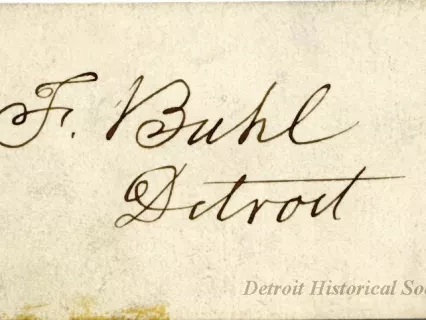 F. Buhl
Detroit
Detroit Historical Soc